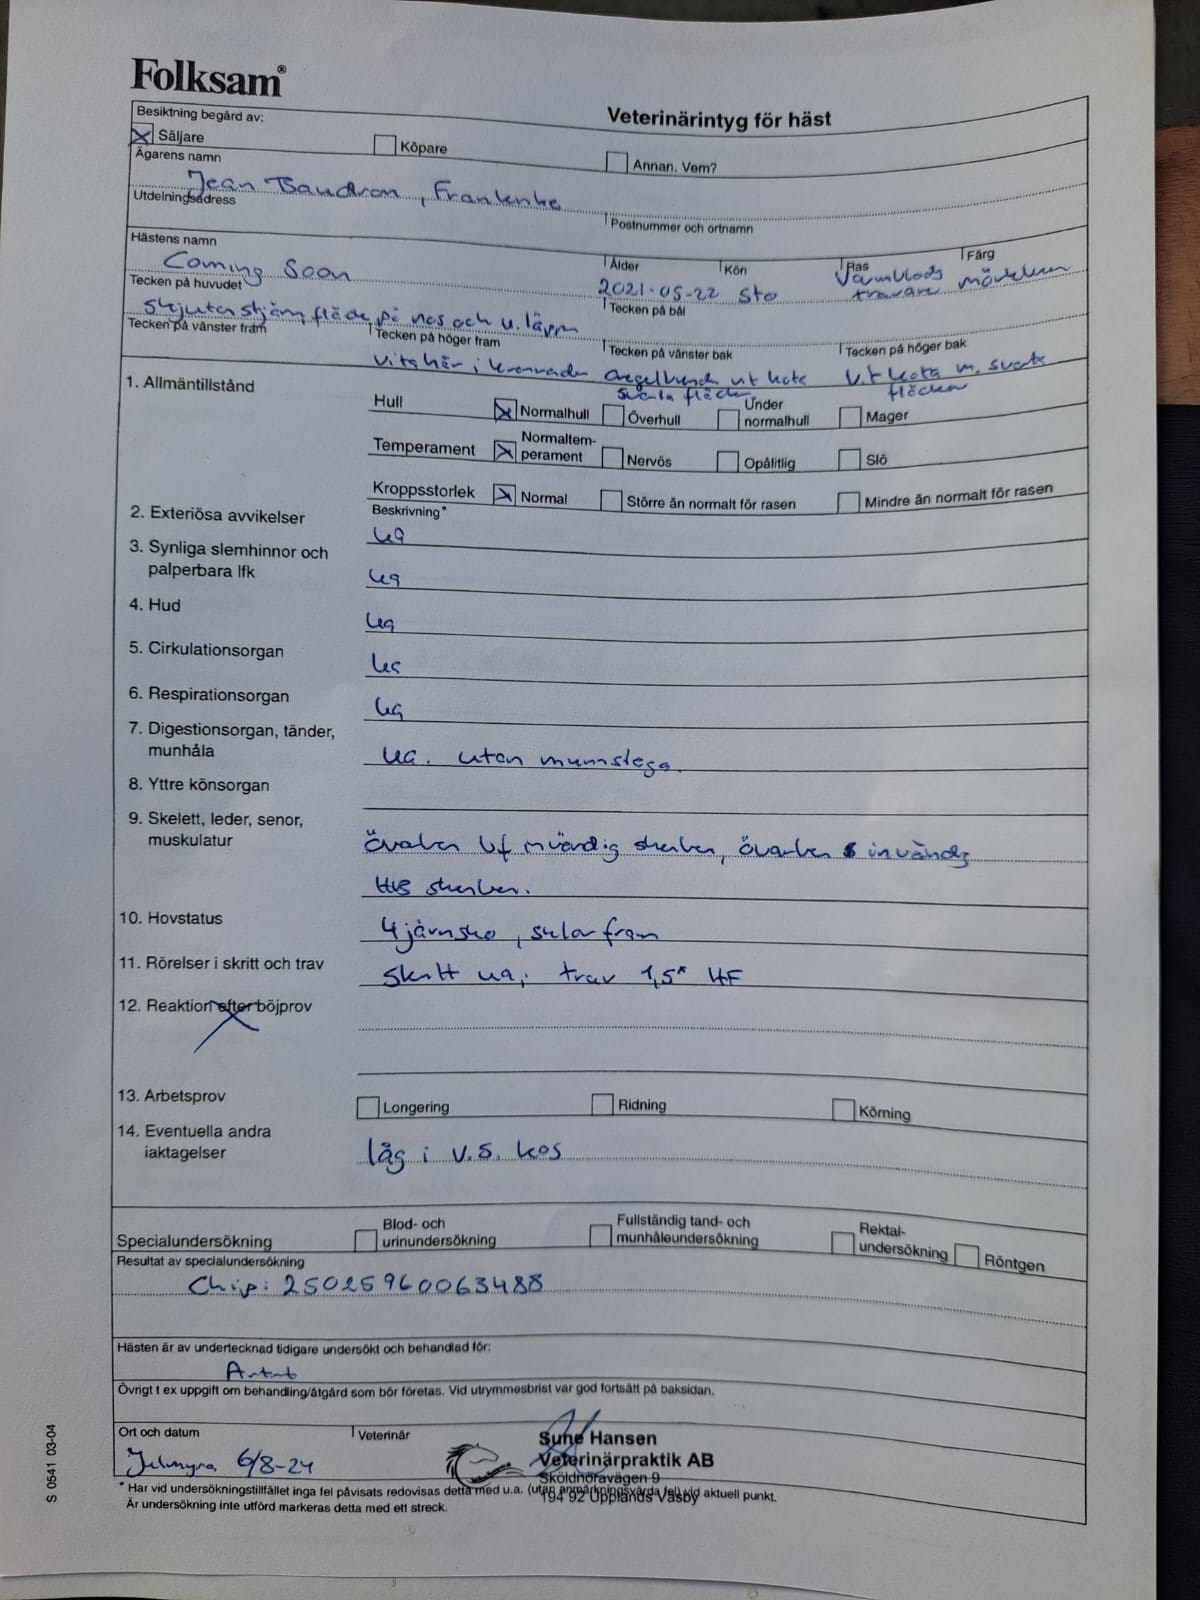 Folksam®
Veterinärintyg för häst
Besiktning begärd av:
Säljare
Köpare
Annan. Vem?
Ägarens namn
Jean Baudron, Frankrike
Utdelningsadress
Postnummer och ortnamn
Hästens namn
Ålder
Kön
Ras
Färg
Coming Soon
2021-05-22 Sto
Varmblods
travare
Tecken på huvudet
Tecken på bål
stjärn, fläck på nos och u. läpp
Tecken på vänster fram
Tecken på höger fram
Tecken på vänster bak
Tecken på höger bak
vita hår i kronranden
vit kota
svarta fläckar
vit kota m. svarta
fläckar
1. Allmäntillstånd
Hull
Normalhull
Överhull
Under
normalhull
Mager
Temperament
Normaltem-
perament
Nervös
Opålitlig
Slö
Kroppsstorlek
Normal
Större än normalt för rasen
Mindre än normalt för rasen
2. Exteriösa avvikelser
Beskrivning*
ua
3. Synliga slemhinnor och
palperbara lfk
ua
4. Hud
ua
5. Cirkulationsorgan
ua
6. Respirationsorgan
ua
7. Digestionsorgan, tänder,
munhåla
ua. utan munstege.
8. Yttre könsorgan
9. Skelett, leder, senor,
muskulatur
överben invändig skenben, överben invändig
HB skenben.
10. Hovstatus
4 järnsko, sulor fram
11. Rörelser i skritt och trav
skritt ua; trav 1,5° HF
12. Reaktion efter böjprov
13. Arbetsprov
Longering
Ridning
Körning
14. Eventuella andra
iaktagelser
låg i v.s. kos
Specialundersökning
Blod- och
urinundersökning
Fullständig tand- och
munhåleundersökning
Rektal-
undersökning
Röntgen
Resultat av specialundersökning
Chip: 25025960063488
Hästen är av undertecknad tidigare undersökt och behandlad för:
Övrigt t ex uppgift om behandling/åtgärd som bör företas. Vid utrymmesbrist var god fortsätt på baksidan.
Ort och datum
Veterinär
6/8-24
Sune Hansen
Veterinärpraktik AB
Sköldnoravägen 9
194 92 Upplands Väsby
* Har vid undersökningstillfället inga fel påvisats redovisas detta med u.a. (utan anmärkningsvärda fel) vid aktuell punkt.
Är undersökning inte utförd markeras detta med ett streck.
S 0541 03-04